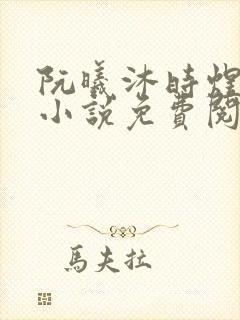 阮曦沐時煌
小說免費閱
馬夫拉